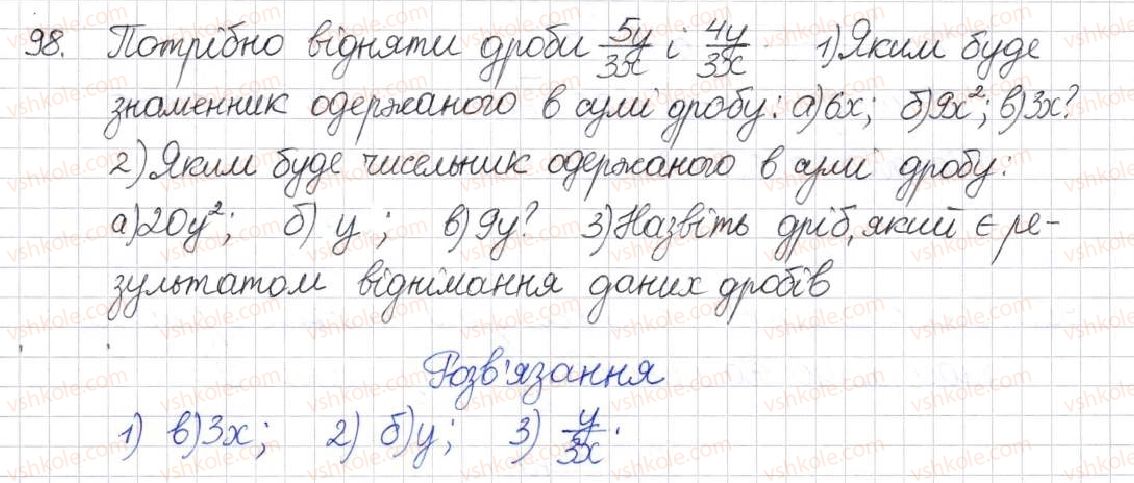 98. Потрібно відняти дроби 5y/3x і 4y/3x 1) Яким буде
знаменник одержаного в сумі дробу: а) 6x; б) 9x²; в) 3x?
2) Яким буде чисельник одержаного в сумі дробу:
а) 20y²; б) y; в) 9y? 3) Назвіть дріб, який є ре-
зультатом віднімання даних дробів
Розв'язання
1) в) 3x; 2) б) y; 3) y/3x.